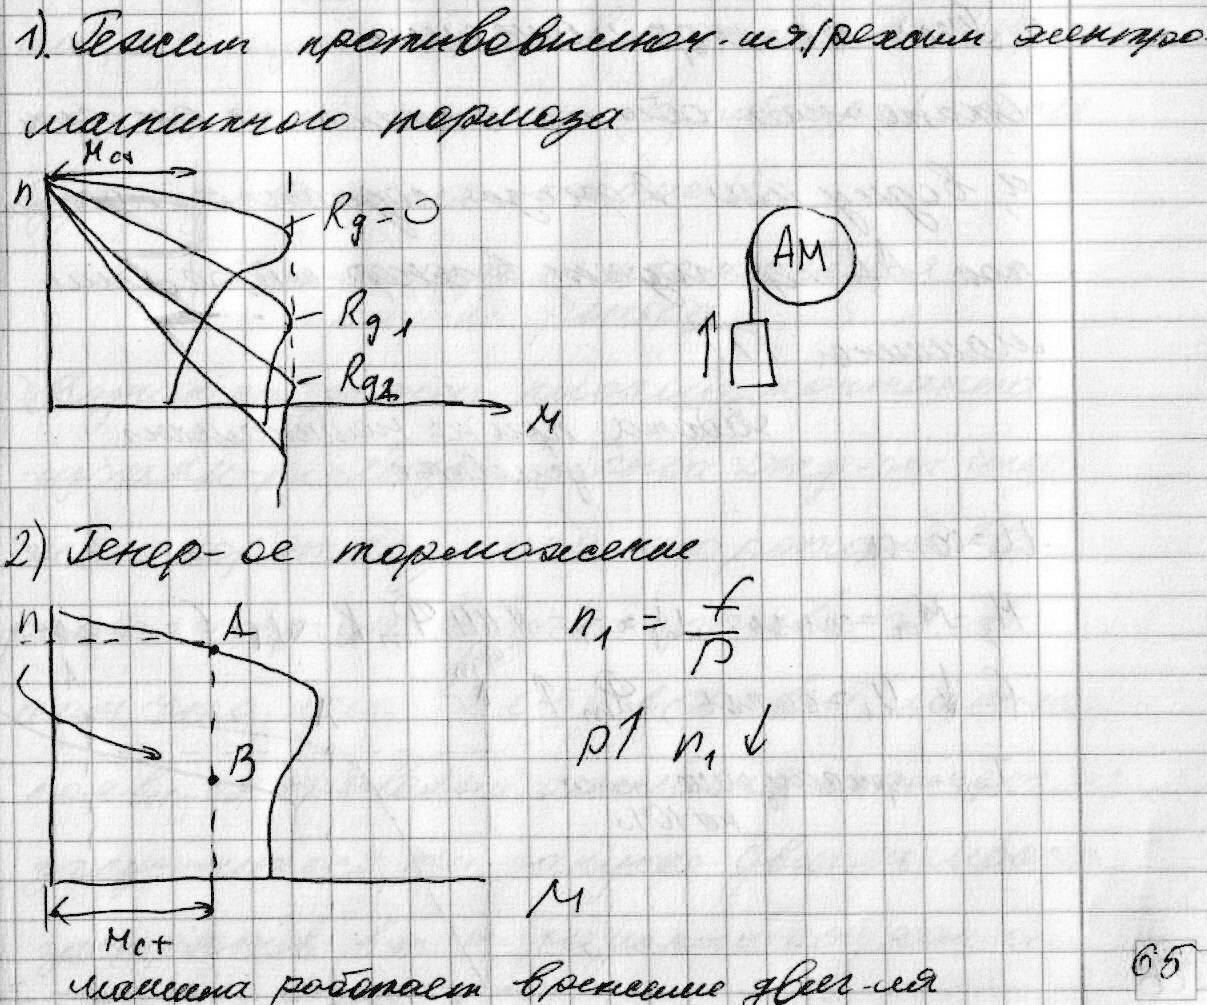 1). Режим противовключ-ия /(режим электро-
магнитного тормоза
Mст
n
Rg = 0
Rg1
Rg2
M
АМ
2) Генер-ое торможение
n
A
B
n1 = f/p
p↑ n1 ↓
M
Mст
машина работает в режиме двиг-ля
65